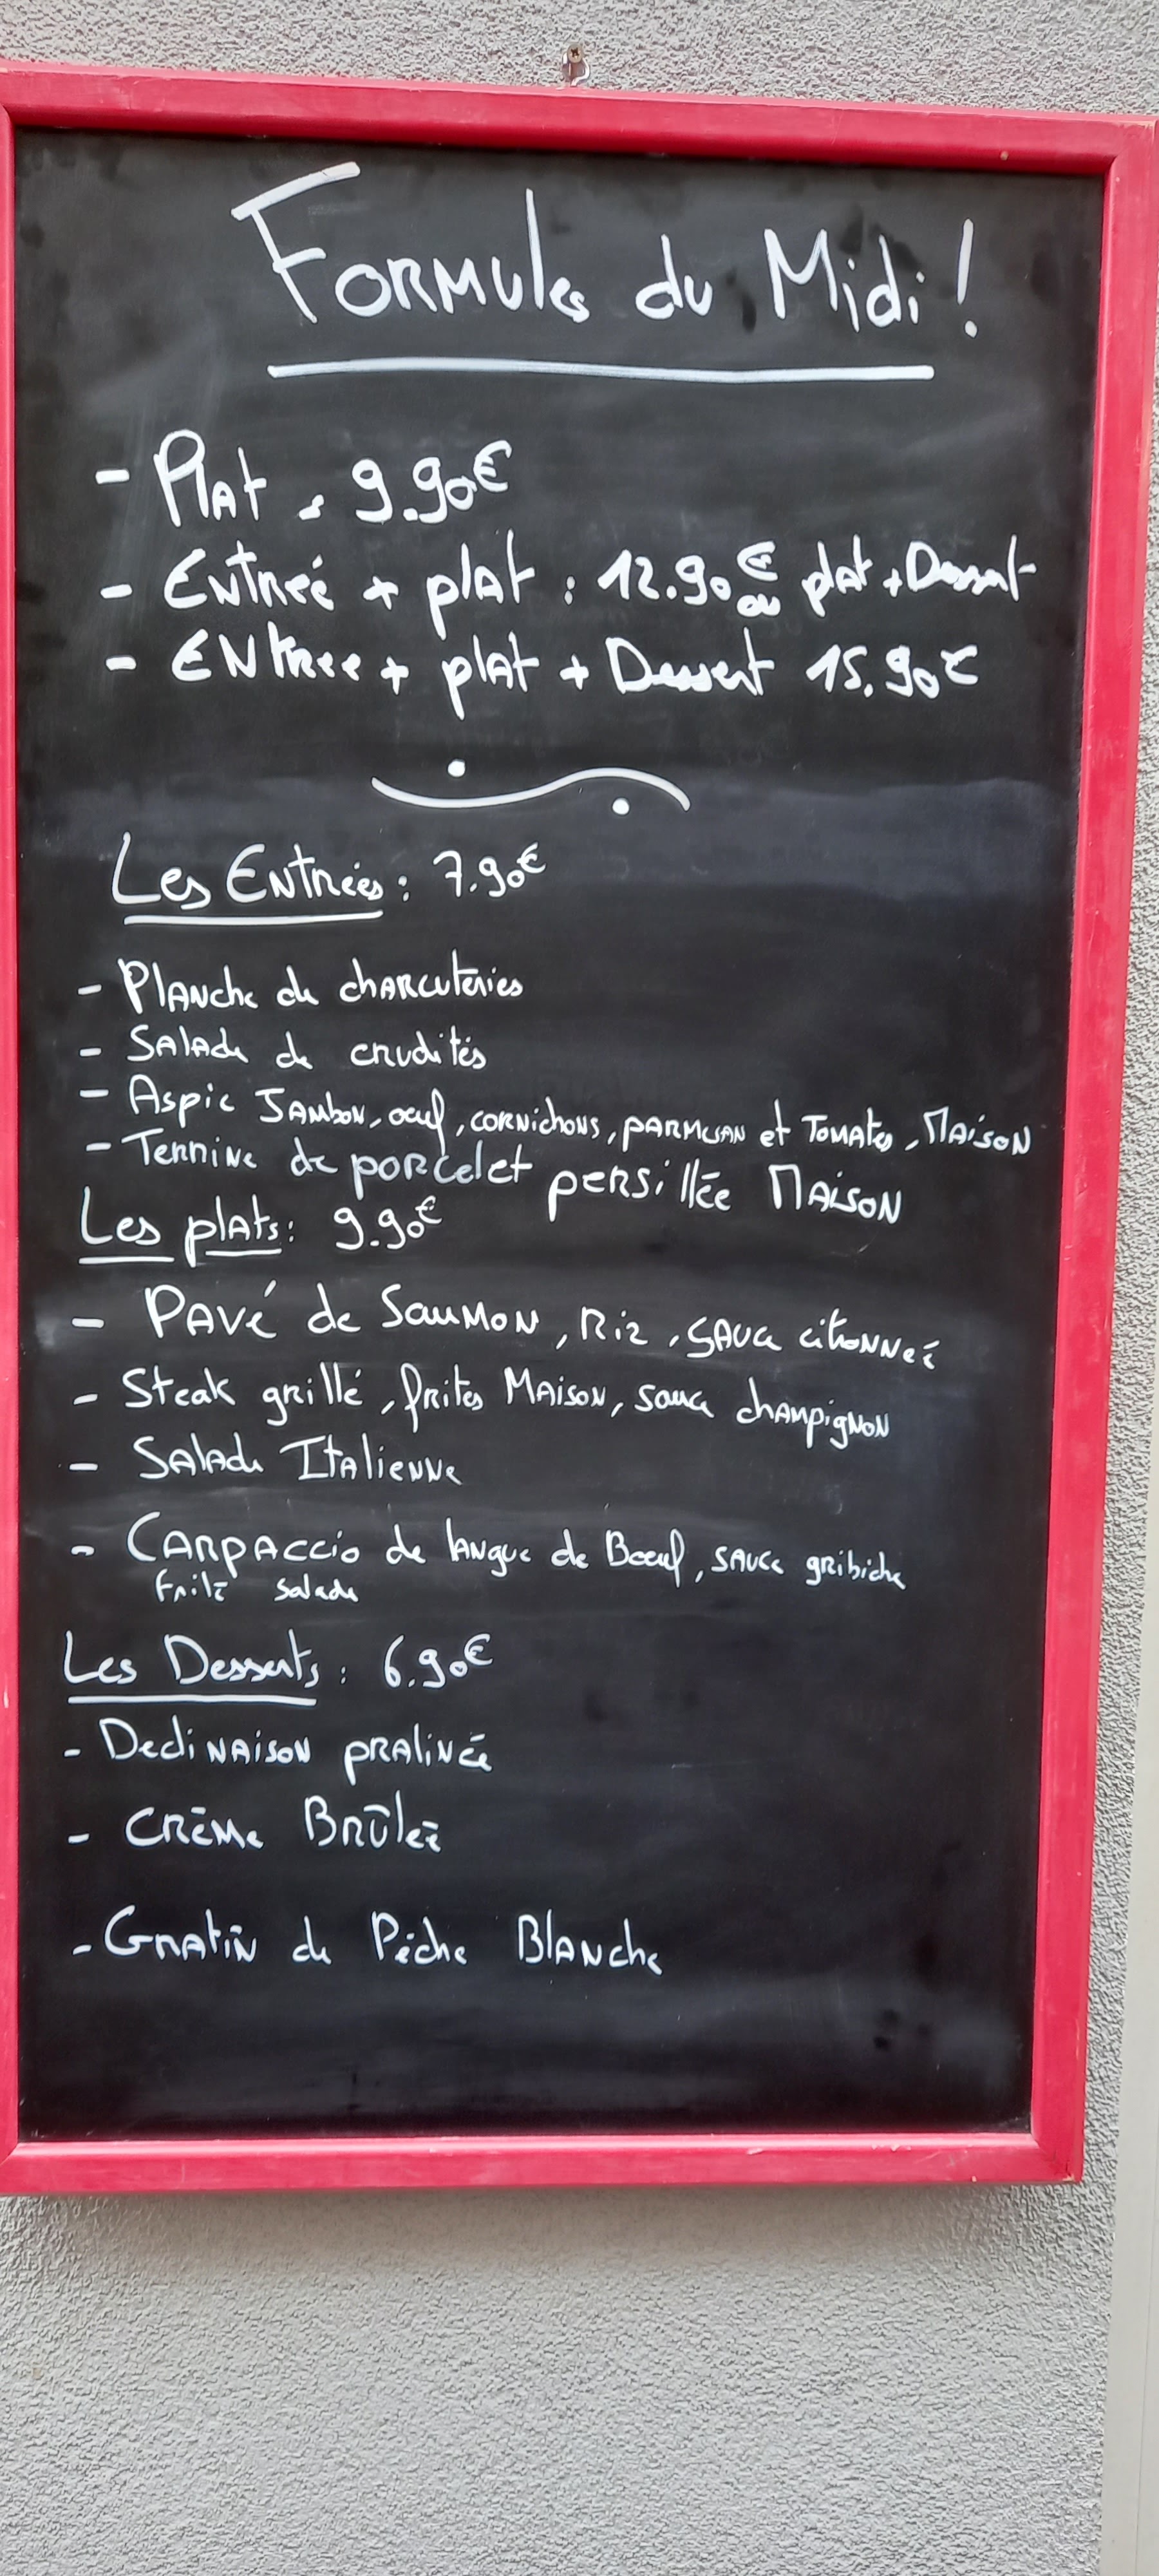 Formules du Midi !
- Plat : 9.90€
- Entrée + plat : 12.90€ ou plat + Dessert
- Entree + plat + Dessert 15.90€
Les Entrées : 7.90€
- Planche de charcuteries
- Salade de crudités
- Aspic Jambon, oeuf, cornichons, parmesan et Tomates, Maison
- Terrine de porcelet persillée Maison
Les plats : 9.90€
- Pavé de Saumon, Riz, sauce citronneé
- Steak grillé, frites Maison, sauce champignon
- Salade Italienne
- Carpaccio de langue de Boeuf, sauce gribiche
frite salade
Les Desserts : 6.90€
- Declinaison pralinée
- Crème Brûleé
- Gratin de Pêche Blanche